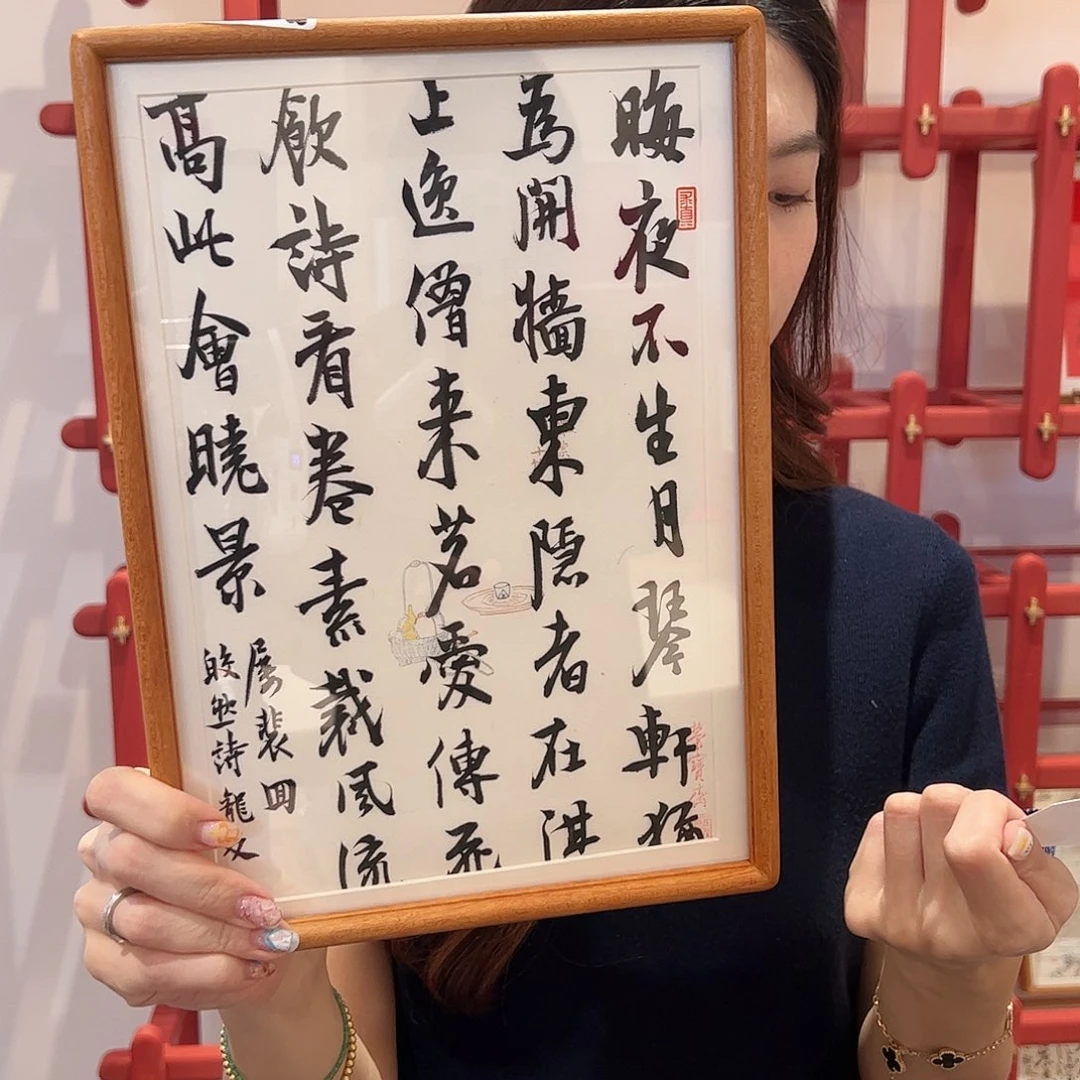 晦夜不生月琴軒猶
為開牆東隱者在淇
上逸僧来茗愛傳
飲詩看卷素裁風流
高此會曉景
屡裴回
皎然詩
榮寶齋